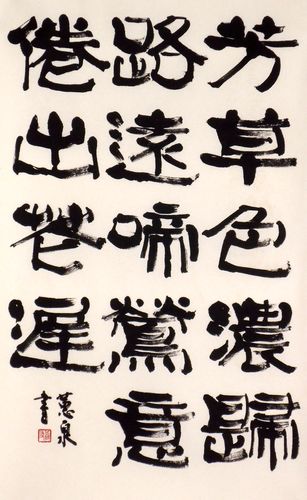 芳草色濃歸
路遠啼鶯意
倦出花遲
蕙泉
書